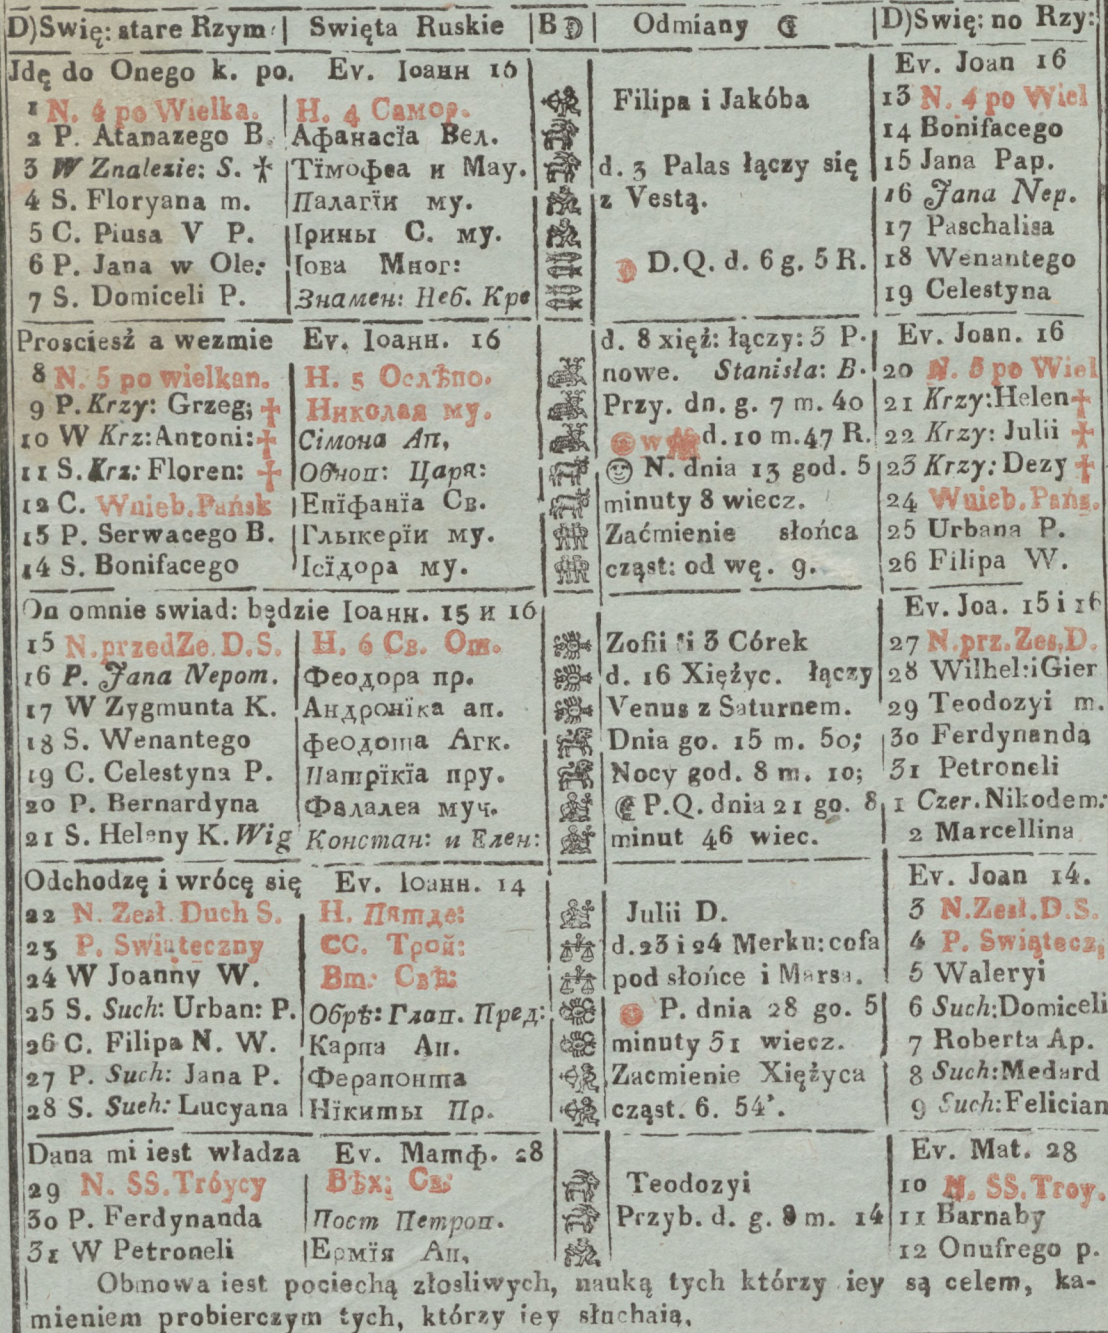 D)Swię: stare Rzym: | Swięta Ruskie | B | Odmiany | D)Swię: no Rzy:
Jdę do Onego k. po. Ev. Іоанн 16 | Ev. Joan 16
1 N. 4 po Wielka. | Н. 4 Самор. | Filipa i Jakóba | 13 N. 4 po Wiel
2 P. Atanazego B. | Афанасїа Вел. | 14 Bonifacego
3 W Znalezie: S. ☥ | Тїмофеа и Мау. | d. 3 Palas łączy się | 15 Jana Pap.
4 S. Floryana m. | Палагїи му. | z Vestą. | 16 Jana Nep.
5 C. Piusa V P. | Ірины С. му. | 17 Paschalisa
6 P. Jana w Ole: | Іова Мног: | D.Q. d. 6 g. 5 R. | 18 Wenantego
7 S. Domiceli P. | Знамен: Неб. Кре | 19 Celestyna
Prosciesż a wezmie Ev. Іоанн. 16 | d. 8 xięż: łączy: 3 P. | Ev. Joan. 16
8 N. 5 po wielkan. | Н. 5 Ослѣпо. | nowe. Stanisła: B. | 20 N. 5 po Wiel
9 P. Krzy: Grzeg; ☩ | Николая му. | Przy. dn. g. 7 m. 40 | 21 Krzy: Helen ☩
10 W Krz: Antoni: ☩ | Сімона Ап, | d. 10 m. 47 R. | 22 Krzy: Julii ☩
11 S. Krz: Floren: ☩ | Обноп: Царя: | N. dnia 13 god. 5 | 23 Krzy: Dezy ☩
12 C. Wnieb. Pańsk | Епїфанїа Св. | minuty 8 wiecz. | 24 Wnieb. Pańs.
13 P. Serwacego B. | Глыкерїи му. | Zaćmienie słońca | 25 Urbana P.
14 S. Bonifacego | Ісїдора му. | cząst: od wę. 9. | 26 Filipa W.
On omnie swiad: będzie Іоанн. 15 и 16 | Ev. Joa. 15 i 16
15 N. przed Ze. D. S. | Н. 6 Св. От. | Zofii i 3 Córek | 27 N. prz. Zes. D.
16 P. Jana Nepom. | Феодора пр. | d. 16 Xiężyc. łączy | 28 Wilhel: i Gier
17 W Zygmunta K. | Андронїка ап. | Venus z Saturnem. | 29 Teodozyi m.
18 S. Wenantego | феодота Агк. | Dnia go. 15 m. 50; | 30 Ferdynanda
19 C. Celestyna P. | Патрїкїа пру. | Nocy god. 8 m. 10; | 31 Petroneli
20 P. Bernardyna | Фалалеа муч. | P.Q. dnia 21 go. 8 | 1 Czer. Nikodem:
21 S. Heleny K. Wig | Констан: и Елен: | minut 46 wiec. | 2 Marcellina
Odchodzę i wrócę się Ev. Іоанн. 14 | Ev. Joan 14.
22 N. Zesł. Duch S. | Н. Пятде: | Julii D. | 3 N. Zesł. D. S.
23 P. Swiąteczny | СС. Трой: | d. 23 i 24 Merku: cofa | 4 P. Swiątecz,
24 W Joanny W. | Вт: Свѣ: | pod słońce i Marsa. | 5 Waleryi
25 S. Such: Urban: P. | Обрѣ: Глап. Пред: | P. dnia 28 go. 5 | 6 Such: Domiceli
26 C. Filipa N. W. | Карпа Ап. | minuty 51 wiecz. | 7 Roberta Ap.
27 P. Such: Jana P. | Ферапонта | Zacmienie Xiężyca | 8 Such: Medard
28 S. Such: Lucyana | Нїкиты Пр. | cząst. 6. 54'. | 9 Such: Felician
Dana mi iest władza Ev. Матф. 28 | Ev. Mat. 28
29 N. SS. Tróycy | Вѣх; Св: | Teodozyi | 10 N. SS. Troy.
30 P. Ferdynanda | Пост Петроп. | Przyb. d. g. 8 m. 14 | 11 Barnaby
31 W Petroneli | Ермїя Ап, | 12 Onufrego p.
Obmowa iest pociechą złosliwych, nauką tych którzy iey są celem, ka-
mieniem probierczym tych, którzy iey słuchaią.